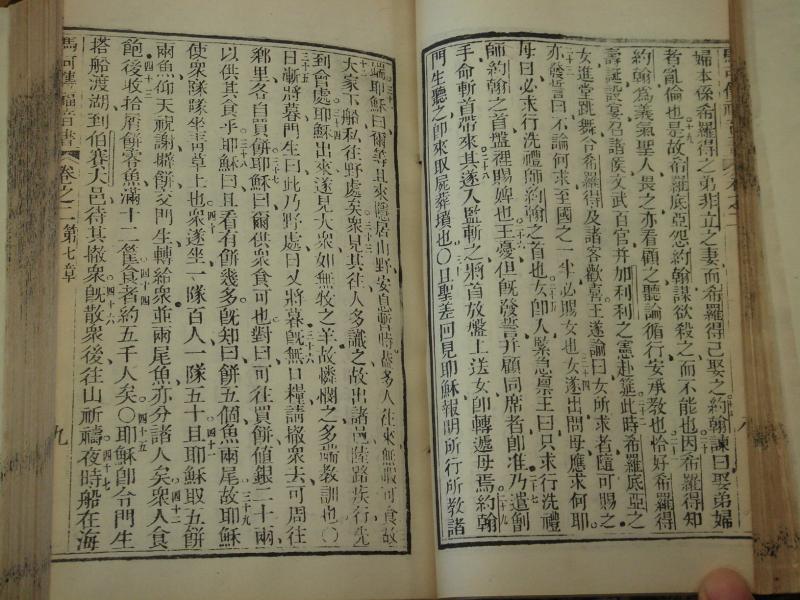 婦本係希羅得之弟非立之妻而希羅得己娶之約翰諫曰娶弟婦
者亂倫也是故希羅底亞怨約翰謀欲殺之而不能也因希羅得知
約翰為義氣聖人畏之亦看顧之聽諭循行安承教也恰好希羅得
壽誕設宴召諸侯文武百官并加利利之憲赴筵此時希羅底亞之
女進堂跳舞令希羅得及諸客歡喜王遂諭曰女所求者隨可賜之
亦發誓曰不論何求至國之一半必賜女也女遂出問母應求何耶
母曰必求行洗禮師約翰之首也女即人緊急禀王曰只求行洗禮
師約翰之首盤裡賜婢也王憂但既發誓并顧同席者即准乃遣劊
手命斬首帶來其遂入監斬之將首放盤上送女即轉遞母焉約翰
門生聽之即來取屍葬墳也〇且聖差回見耶穌報明所行所教諸
端耶穌曰爾等且來隱居山野安息暫時蓋多人往來無暇可食故
大家下船私往野處矣眾見其往人多識之故出諸邑陸路疾行先
到會處耶穌出來遂見大眾如無牧之羊故憐憫之多端教訓也〇
日漸將暮門生曰此乃野處日又將暮既無口糧請撤眾去可周往
鄉里各自買餅耶穌曰爾供眾食可也對曰可往買餅值銀二十兩
以供其食乎耶穌曰且看有餅幾多既知曰餅五個魚兩尾故耶穌
使眾隊隊坐青草上也眾遂坐一隊百人一隊五十且耶穌取五餅
兩魚仰天祝謝擘餅交門生轉給眾並兩尾魚亦分諸人矣眾人食
飽後收拾屑餅零魚滿十二筐食者約五千人矣〇耶穌即令門生
搭船渡湖到伯賽大邑待其撤眾既散眾後往山祈禱夜時船在海
馬可傳福音書 卷之二 第七章 九